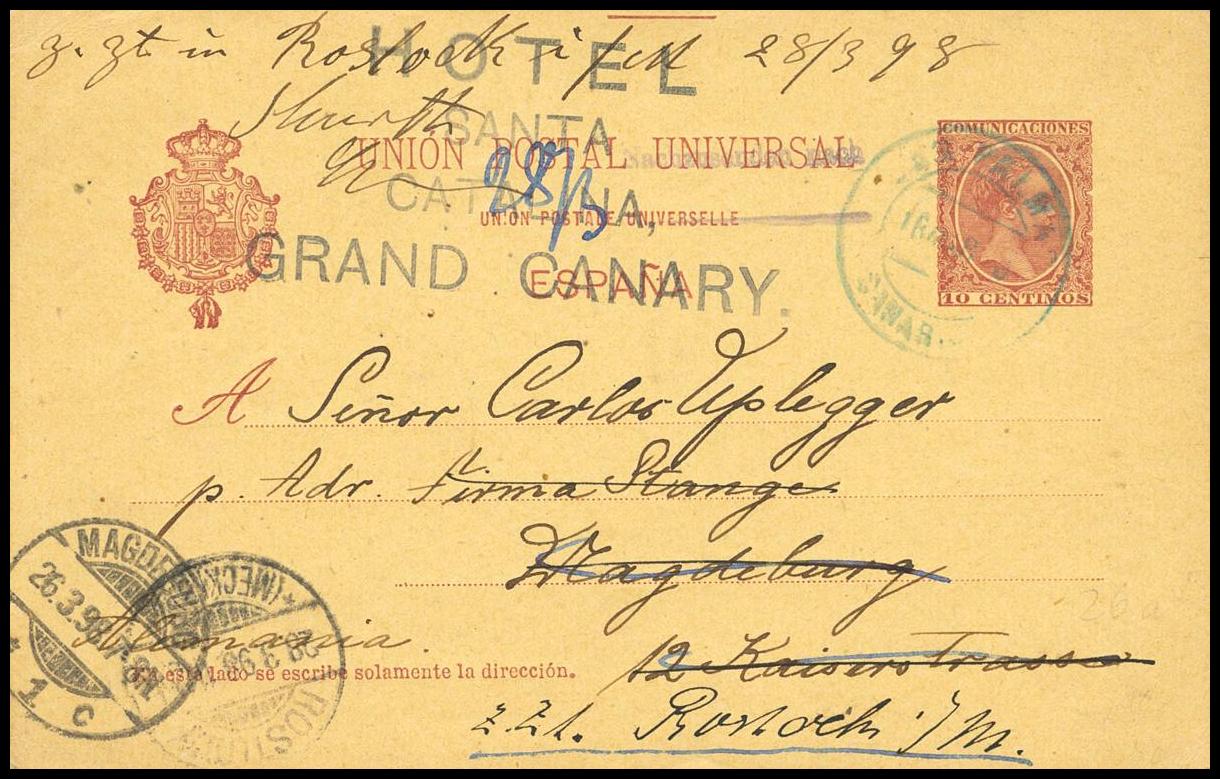 z. Zt in Rostock i/M 28/3 98
HOTEL
SANTA
CATALINA,
GRAND CANARY.
UNIÓN POSTAL UNIVERSAL
UNION POSTALE UNIVERSELLE
ESPAÑA
28/3
COMUNICACIONES
10 CENTIMOS
CANAR
A Señor Carlos Uplegger
p. Adr. Firma Stange
Magdeburg
12 Kaiserstrasse
Alemania.
En este lado se escribe solamente la dirección.
z. Zt. Rostock i/M.
MAGDE
26.3.98
1 c
ROSTOCK
(MECKL
28 3 98
26a